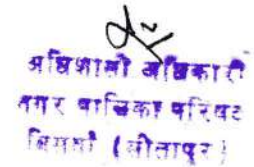 अधिशासी अधिकारी
नगर पालिका परिषद
(सीतापुर)